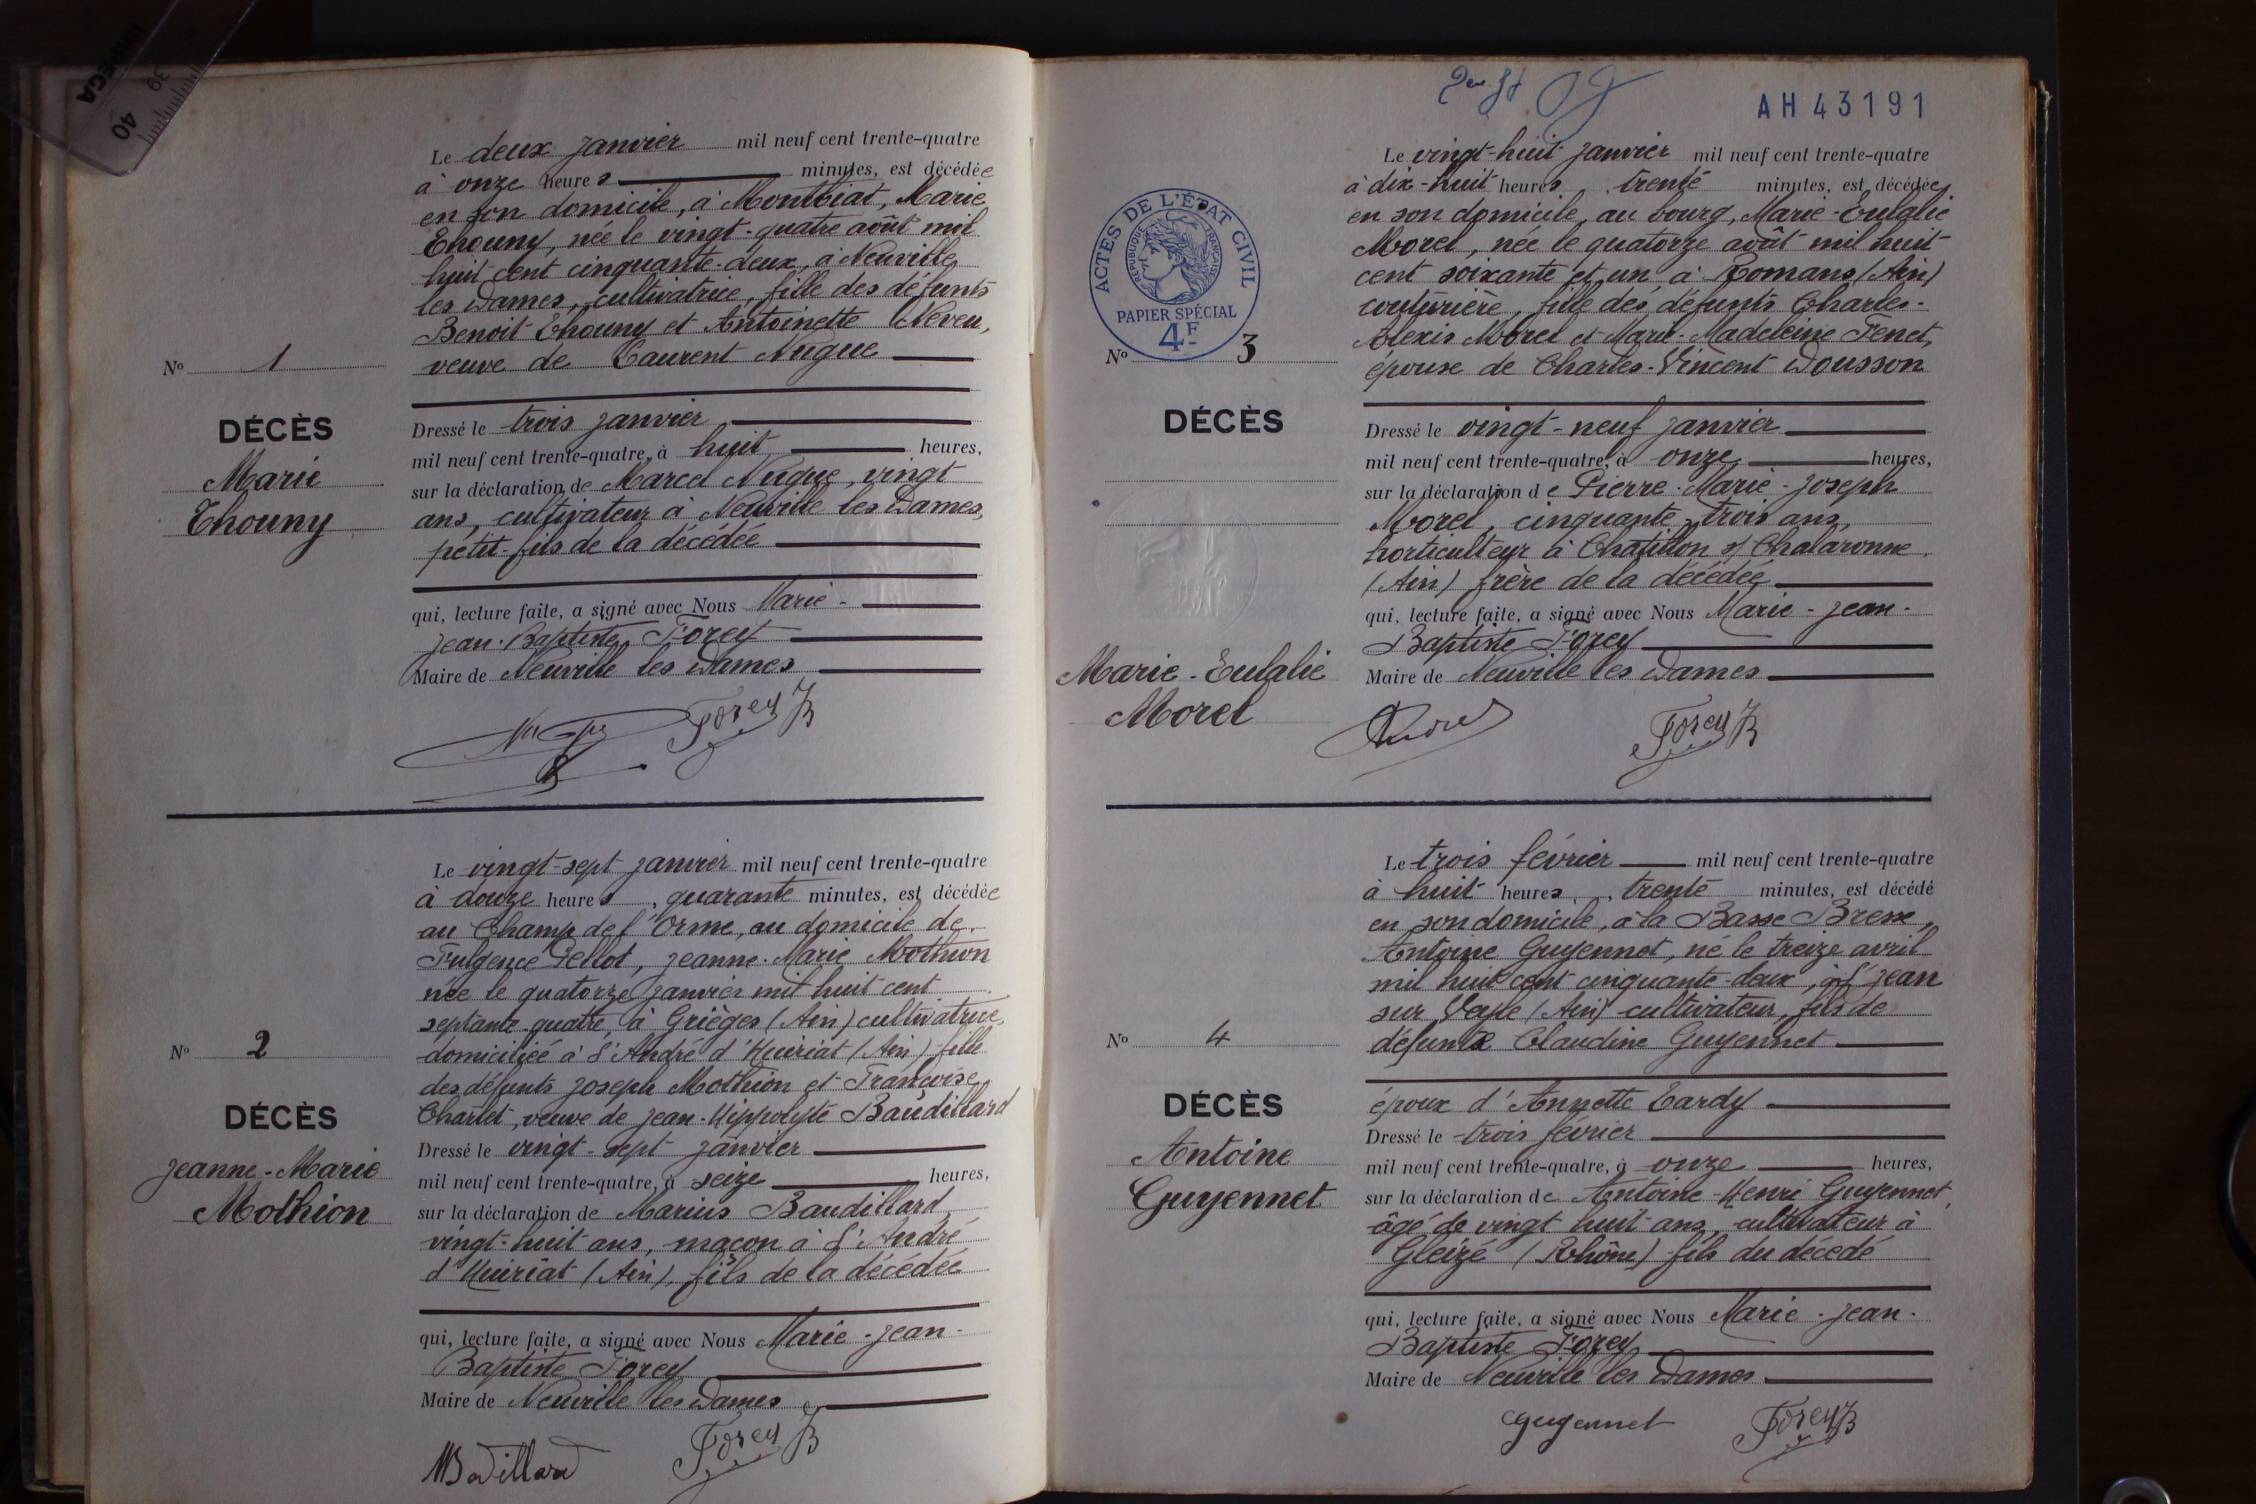 Le deux janvier mil neuf cent trente-quatre
à onze heures minutes, est décédée
en son domicile, à Montbiat, Marie
Thouny, née le vingt-quatre août mil
huit cent cinquante-deux, à Neuville
les Dames, cultivatrice, fille des défunts
Benoit Thouny et Antoinette Neveu,
veuve de Laurent Nugue
No 1
DÉCÈS
Marie
Thouny
Dressé le trois janvier
mil neuf cent trente-quatre, à huit heures,
sur la déclaration de Marcel Nugue, vingt
ans, cultivateur à Neuville les Dames,
petit-fils de la décédée
qui, lecture faite, a signé avec Nous Marie-
Jean-Baptiste Forey
Maire de Neuville les Dames
Forey JB
Le vingt-sept janvier mil neuf cent trente-quatre
à douze heures, quarante minutes, est décédée
au Champ de l'Orme, au domicile de
Fulgence Pellot, Jeanne-Marie Mothion
née le quatorze janvier mil huit cent
septante quatre, à Grièges (Ain) cultivatrice,
domiciliée à St André d'Huiriat (Ain) fille
des défunts Joseph Mothion et Françoise
Charlet, veuve de Jean-Hippolyte Baudillard
No 2
DÉCÈS
Jeanne-Marie
Mothion
Dressé le vingt-sept janvier
mil neuf cent trente-quatre, à seize heures,
sur la déclaration de Marius Baudillard,
vingt-huit ans, maçon à St André
d'Huiriat (Ain), fils de la décédée
qui, lecture faite, a signé avec Nous Marie-Jean-
Baptiste Forey
Maire de Neuville les Dames
MBodillard
Forey JB
AH 43191
ACTES DE L'ÉTAT CIVIL
RÉPUBLIQUE FRANÇAISE
PAPIER SPÉCIAL
4F
Le vingt-huit janvier mil neuf cent trente-quatre
à dix-huit heures, trente minutes, est décédée
en son domicile, au bourg, Marie-Eulalie
Morel, née le quatorze août mil huit
cent soixante et un à Romans (Ain)
couturière, fille des défunts Charles-
Alexis Morel et Marie-Madeleine Tenet,
épouse de Charles-Vincent Dousson
No 3
DÉCÈS
Marie-Eulalie
Morel
Dressé le vingt-neuf janvier
mil neuf cent trente-quatre, à onze heures,
sur la déclaration de Pierre-Marie-Joseph
Morel, cinquante-trois ans,
horticulteur à Chatillon s/ Chalaronne
(Ain) frère de la décédée
qui, lecture faite, a signé avec Nous Marie-Jean-
Baptiste Forey
Maire de Neuville les Dames
Morel
Forey JB
Le trois février mil neuf cent trente-quatre
à huit heures, trente minutes, est décédé
en son domicile, à la Basse Bresse,
Antoine Guyennet, né le treize avril
mil huit cent cinquante-deux, à St Jean
sur Veyle (Ain) cultivateur, fils de
défunte Claudine Guyennet
époux d'Annette Tardy
No 4
DÉCÈS
Antoine
Guyennet
Dressé le trois février
mil neuf cent trente-quatre, à onze heures,
sur la déclaration de Antoine-Henri Guyennet,
âgé de vingt huit ans, cultivateur à
Gleizé (Rhône) fils du décédé
qui, lecture faite, a signé avec Nous Marie-Jean-
Baptiste Forey
Maire de Neuville les Dames
Guyennet
Forey JB
40
39